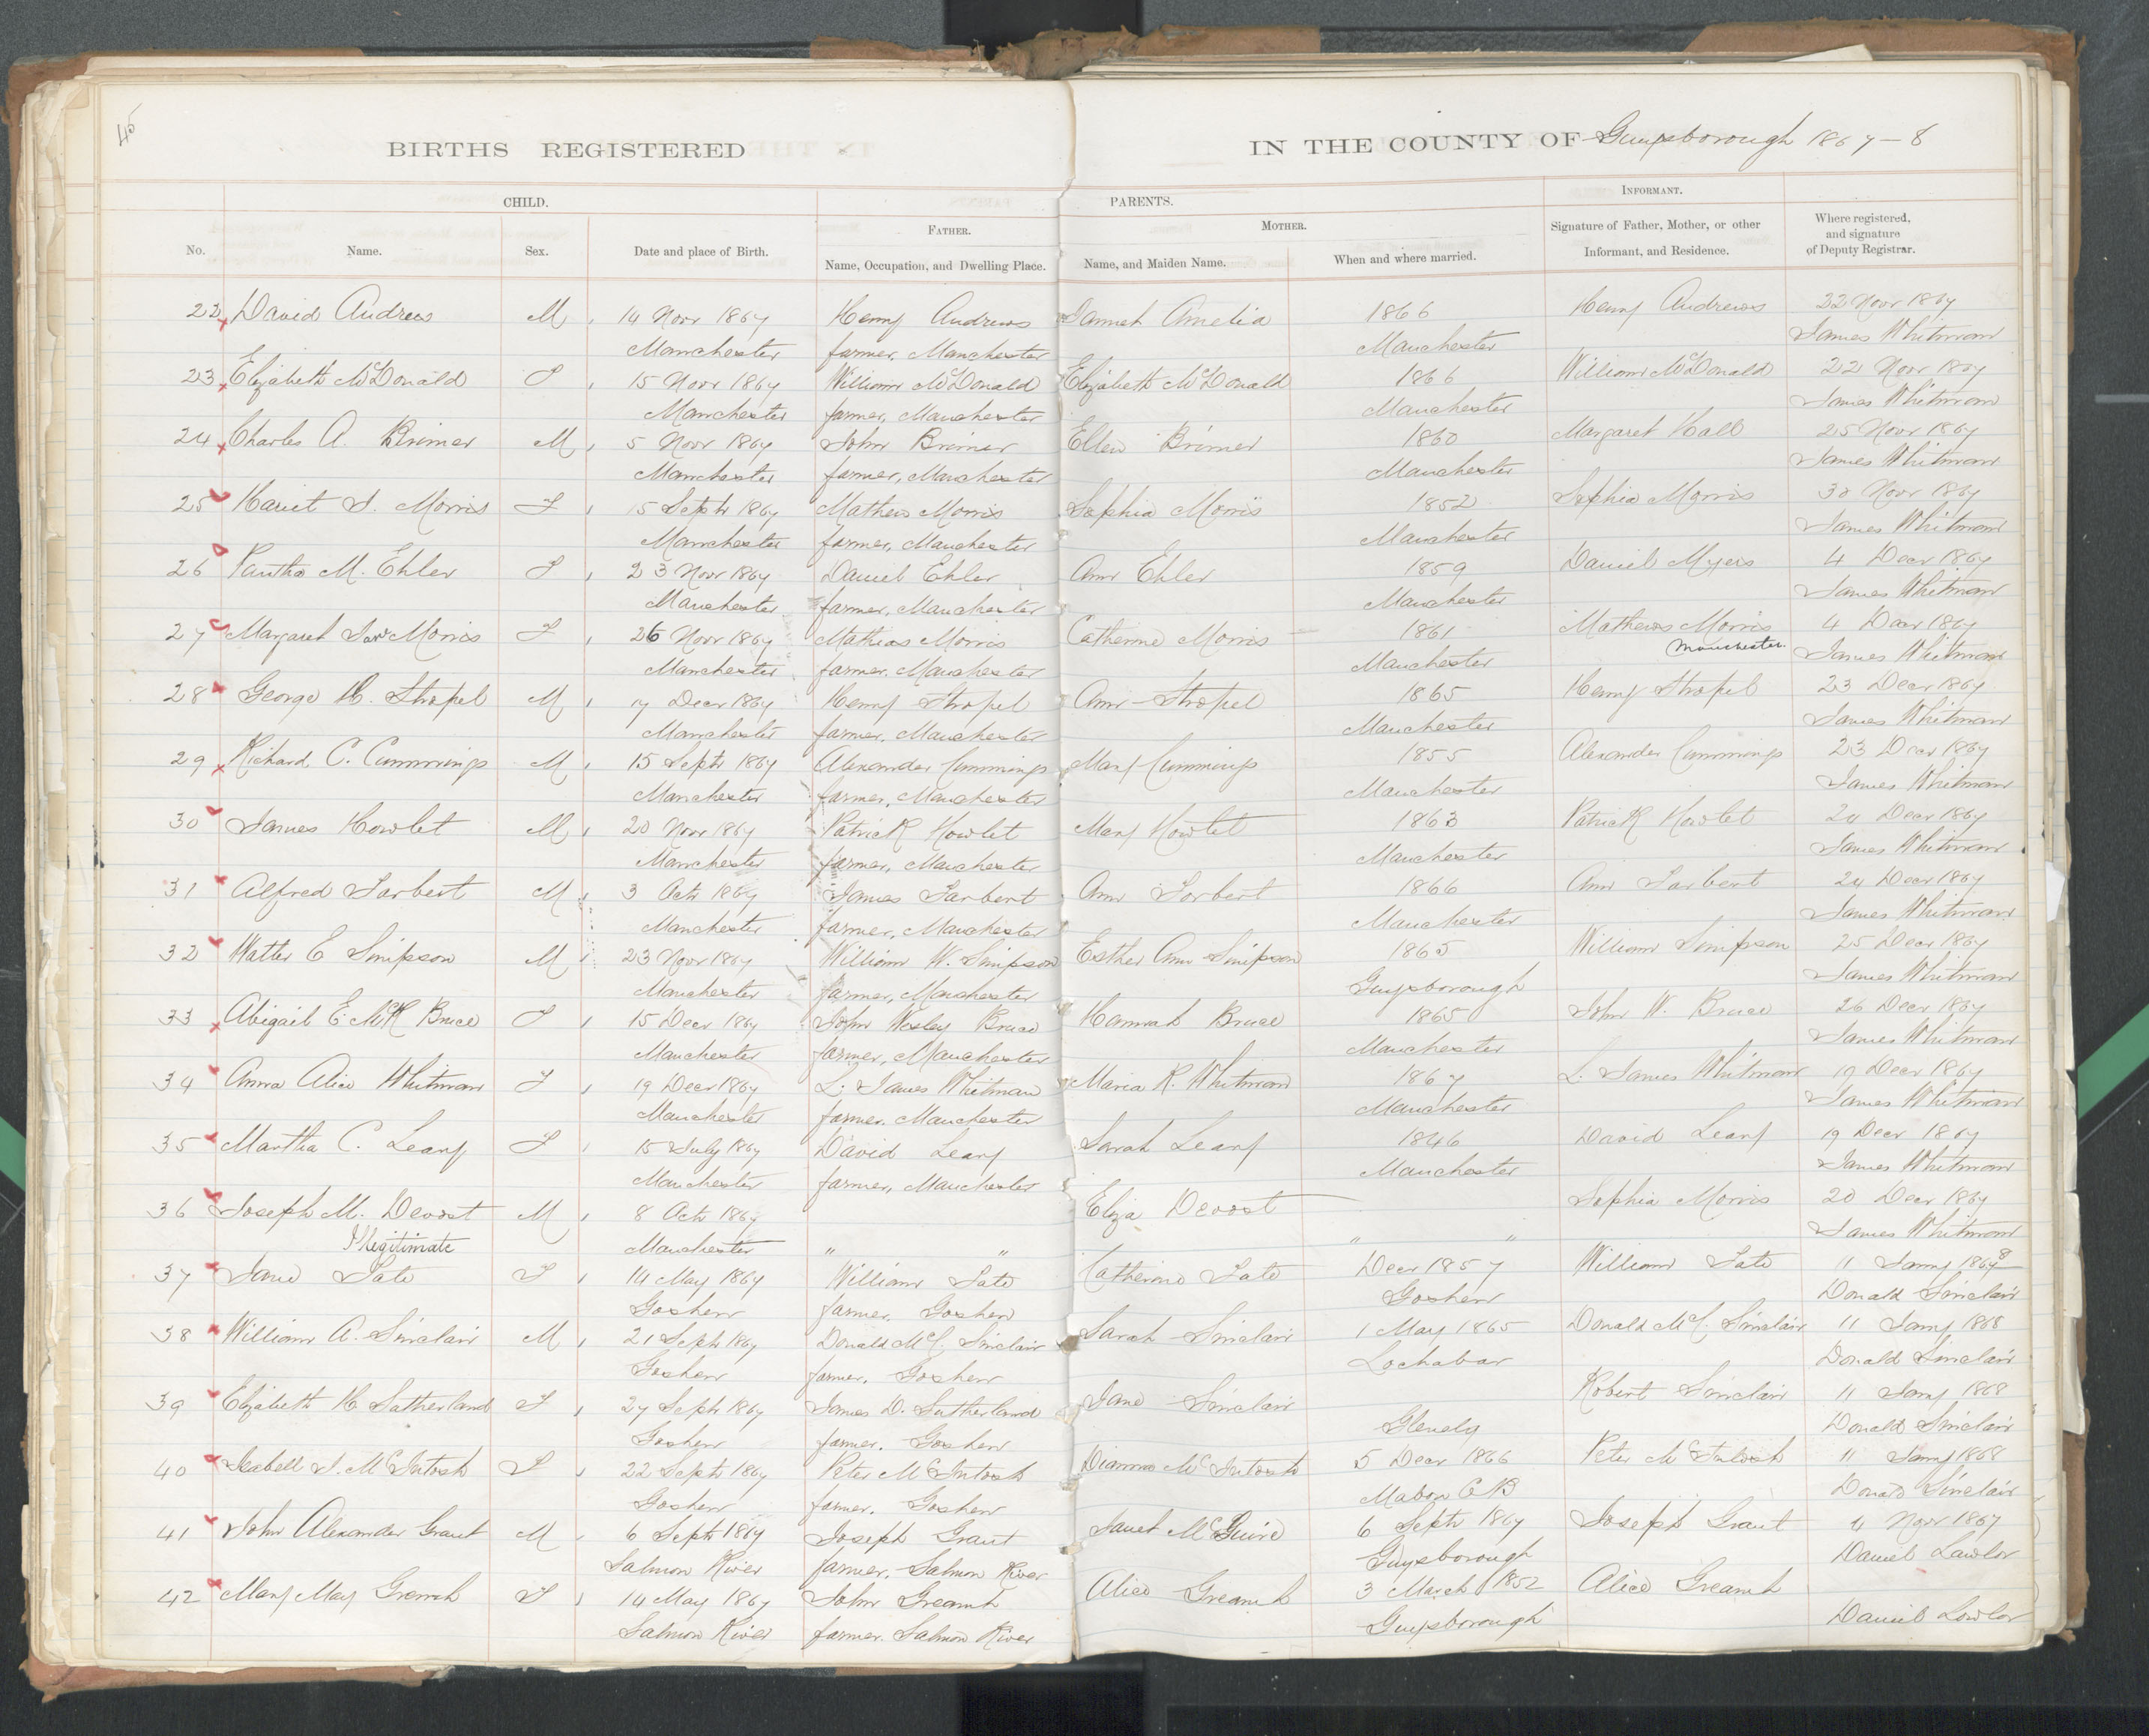 45
BIRTHS REGISTERED IN THE COUNTY OF Guysborough 1867-8
CHILD. PARENTS. INFORMANT.
No. Name. Sex. Date and place of Birth. FATHER. Name, Occupation, and Dwelling Place. MOTHER. Name, and Maiden Name. When and where married. Signature of Father, Mother, or other Informant, and Residence. Where registered, and signature of Deputy Registrar.
22 David Andrews M 14 Novr 1867 Henry Andrews Amelia 1866 Henry Andrews 22 Novr 1867
Manchester farmer, Manchester Manchester James Whitman
23 Elizabeth McDonald F 15 Novr 1867 William McDonald Elizabeth McDonald 1866 William McDonald 22 Novr 1867
Manchester farmer, Manchester Manchester James Whitman
24 Charles A. Brimer M 5 Novr 1867 John Brimer Ellen Brimer 1860 Margaret Hall 25 Novr 1867
Manchester farmer, Manchester Manchester James Whitman
25 Hariet S. Morris F 15 Septr 1867 Mathew Morris Sophia Morris 1852 Sophia Morris 30 Novr 1867
Manchester farmer, Manchester Manchester James Whitman
26 M. Ehler F 23 Novr 1867 Daniel Ehler Ann Ehler 1859 Daniel Myers 4 Decr 1867
Manchester farmer, Manchester Manchester James Whitman
27 Margaret Morris F 26 Novr 1867 Mathias Morris Catherine Morris 1861 Mathews Morris 4 Decr 1867
Manchester farmer, Manchester Manchester Manchester. James Whitman
28 George H. Stropel M 17 Decr 1867 Henry Stropel Ann Stropel 1865 Henry Stropel 23 Decr 1867
Manchester farmer, Manchester Manchester James Whitman
29 Richard C. Cummings M 15 Septr 1867 Alexander Cummings Mary Cummings 1855 Alexander Cummings 23 Decr 1867
Manchester farmer, Manchester Manchester James Whitman
30 James Howlet M 20 Novr 1867 Patrick Howlet Mary Howlet 1863 Patrick Howlet 24 Decr 1867
Manchester farmer, Manchester Manchester James Whitman
31 Alfred Torbert M 3 Octr 1867 James Torbert Ann Torbert 1866 Ann Torbert 24 Decr 1867
Manchester farmer, Manchester Manchester James Whitman
32 Walter E Simpson M 23 Novr 1867 William W. Simpson Esther Ann Simpson 1865 William Simpson 25 Decr 1867
Manchester farmer, Manchester Guysborough James Whitman
33 Abigail E. McK Bruce F 15 Decr 1867 John Wesley Bruce Hannah Bruce 1865 John W. Bruce 26 Decr 1867
Manchester farmer, Manchester Manchester James Whitman
34 Anna Alice Whitman F 19 Decr 1867 L. James Whitman Maria R. Whitman 1867 L. James Whitman 19 Decr 1867
Manchester farmer. Manchester Manchester James Whitman
35 Martha C. Leary F 15 July 1867 David Leary Sarah Leary 1846 David Leary 19 Decr 1867
Manchester farmer, Manchester Manchester James Whitman
36 Joseph M. Devost M 8 Octr 1867 Eliza Devost Sophia Morris 20 Decr 1867
Illegitimate Manchester " " " " James Whitman
37 Jane Tate F 14 May 1867 William Tate Catherine Tate Decr 1857 William Tate 11 Jany 1868
Goshen farmer, Goshen Goshen Donald Sinclair
38 William A. Sinclair M 21 Septr 1867 Donald McL. Sinclair Sarah Sinclair 1 May 1865 Donald McL. Sinclair 11 Jany 1868
Goshen farmer, Goshen Lochabar Donald Sinclair
39 Elizabeth H. Sutherland F 27 Septr 1867 James D. Sutherland Jane Sinclair Robert Sinclair 11 Jany 1868
Goshen farmer. Goshen Glenelg Donald Sinclair
40 Isabell J. McIntosh F 22 Septr 1867 Peter McIntosh McIntosh 5 Decr 1866 Peter McIntosh 11 Jany 1868
Goshen farmer. Goshen Mabou CB Donald Sinclair
41 John Alexander Grant M 6 Septr 1867 Joseph Grant Janet McGuire 6 Septr 1867 Joseph Grant 4 Novr 1867
Salmon River farmer. Salmon River Guysborough Daniel Lawlor
42 Mary May F 14 May 1867 John Alice 3 March 1852 Alice
Salmon River farmer. Salmon River Guysborough Daniel Lawlor